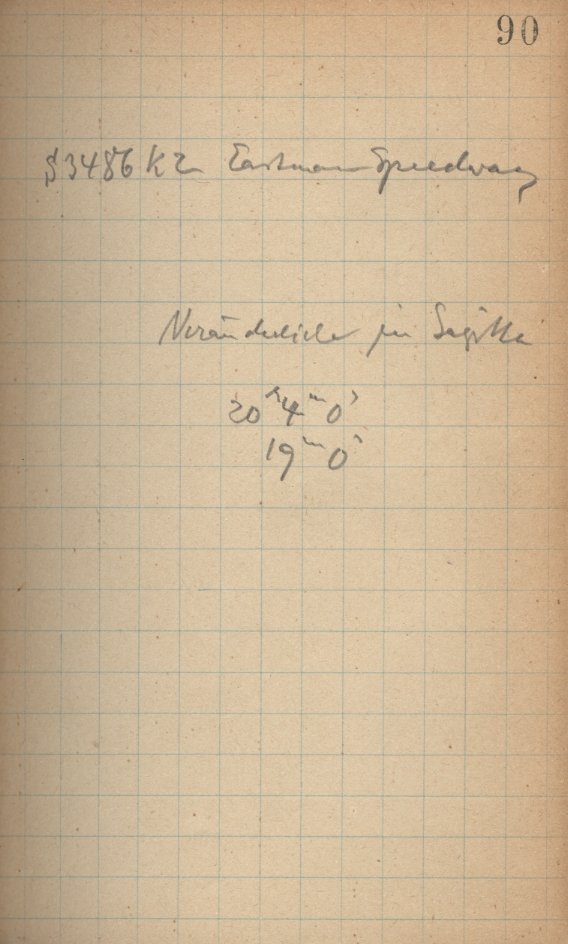 90
S 3486 K2 Eastman Speedway
Veränderliche in Sagitta
20ʰ 4ᵐ 0ˢ
19ᵐ 0ˢ